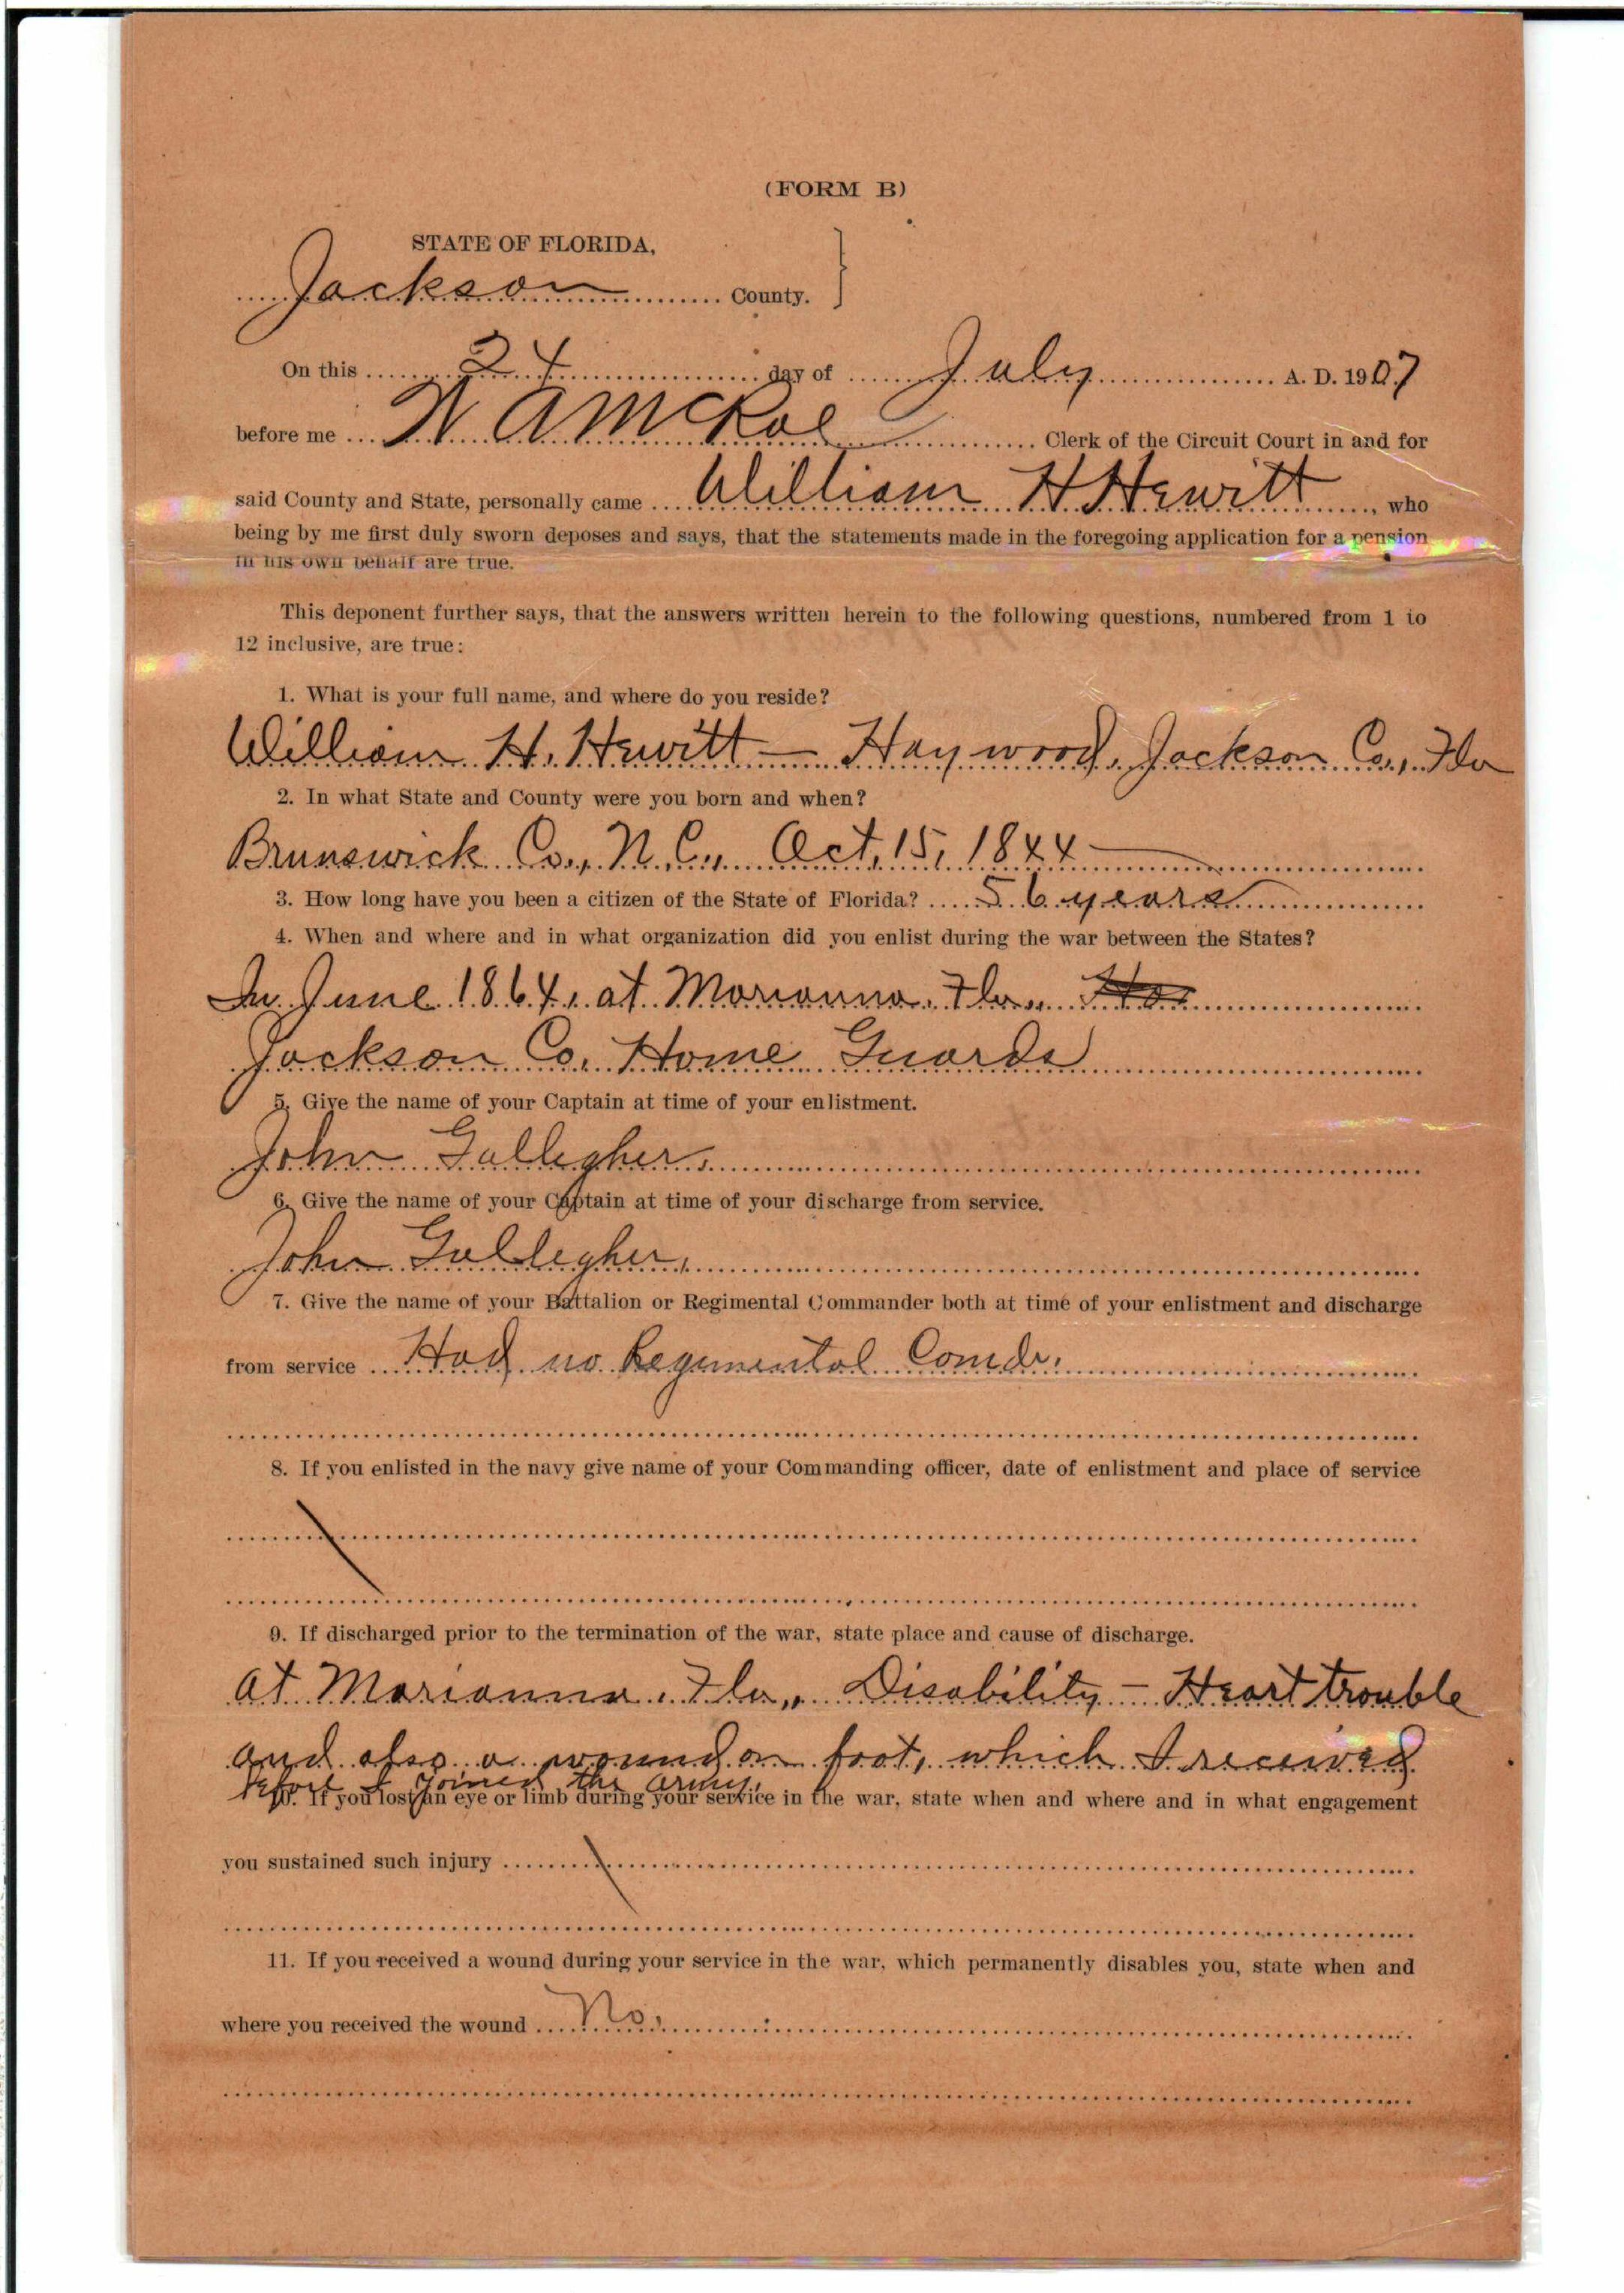 (FORM B)
STATE OF FLORIDA,
Jackson County.
On this 24 day of July A. D. 1907
before me W A McRae Clerk of the Circuit Court in and for
said County and State, personally came William H Hewitt, who
being by me first duly sworn deposes and says, that the statements made in the foregoing application for a pension
in his own behalf are true.
This deponent further says, that the answers written herein to the following questions, numbered from 1 to
12 inclusive, are true:
1. What is your full name, and where do you reside?
William H. Hewitt — Haywood, Jackson Co., Fla
2. In what State and County were you born and when?
Brunswick Co., N.C., Oct, 15, 1844
3. How long have you been a citizen of the State of Florida? 56 years
4. When and where and in what organization did you enlist during the war between the States?
In June 1864, at Marianna, Fla.,
Jackson Co. Home Guards
5. Give the name of your Captain at time of your enlistment.
John Gallegher.
6. Give the name of your Captain at time of your discharge from service.
John Gallegher.
7. Give the name of your Battalion or Regimental Commander both at time of your enlistment and discharge
from service Had no Regimental Comdr.
8. If you enlisted in the navy give name of your Commanding officer, date of enlistment and place of service
9. If discharged prior to the termination of the war, state place and cause of discharge.
at Marianna, Fla., Disability — Heart trouble
and also a wound on foot, which I received
before I joined the army.
10. If you lost an eye or limb during your service in the war, state when and where and in what engagement
you sustained such injury
11. If you received a wound during your service in the war, which permanently disables you, state when and
where you received the wound No.